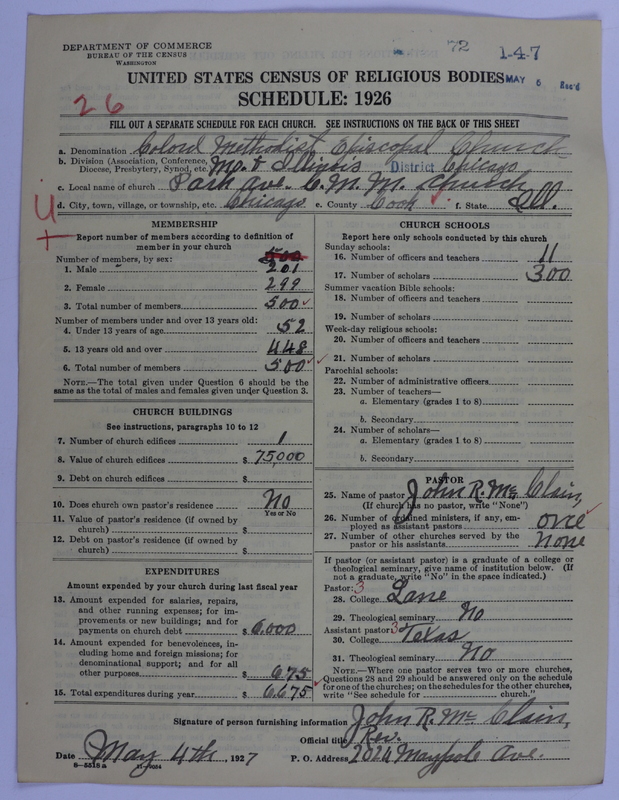 DEPARTMENT OF COMMERCE
BUREAU OF THE CENSUS
WASHINGTON
72
1-4-7
MAY 6 Rec'd
UNITED STATES CENSUS OF RELIGIOUS BODIES
SCHEDULE: 1926
26
FILL OUT A SEPARATE SCHEDULE FOR EACH CHURCH. SEE INSTRUCTIONS ON THE BACK OF THIS SHEET
a. Denomination Colord Methodist Episcopal Church
b. Division (Association, Conference, Diocese, Presbytery, Synod, etc. Mo. & Illinois District Chicago
c. Local name of church Park Ave. C.M.M. Church
d. City, town, village, or township, etc. Chicago e. County Cook f. State Ill.
MEMBERSHIP
Report number of members according to definition of
member in your church
Number of members, by sex: 500
1. Male 201
2. Female 299
3. Total number of members 500
Number of members under and over 13 years old:
4. Under 13 years of age 52
5. 13 years old and over 448
6. Total number of members 500
NOTE.—The total given under Question 6 should be
same as the total of males and females given under Question 3.
CHURCH BUILDINGS
See instructions, paragraphs 10 to 12
7. Number of church edifices 1
8. Value of church edifices $ 75,000
9. Debt on church edifices $
10. Does church own pastor's residence No
Yes or No
11. Value of pastor's residence (if owned by
church) $
12. Debt on pastor's residence (if owned by
church) $
EXPENDITURES
Amount expended by your church during last fiscal year
13. Amount expended for salaries, repairs,
and other running expenses; for im-
provements or new buildings; and for
payments on church debt $ 6,000
14. Amount expended for benevolences, in-
cluding home and foreign missions; for
denominational support; and for all
other purposes $ 675
15. Total expenditures during year $ 6675
CHURCH SCHOOLS
Report here only schools conducted by this church
Sunday schools:
16. Number of officers and teachers 11
17. Number of scholars 300
Summer vacation Bible schools:
18. Number of officers and teachers
19. Number of scholars
Week-day religious schools:
20. Number of officers and teachers
21. Number of scholars
Parochial schools:
22. Number of administrative officers
23. Number of teachers—
a. Elementary (grades 1 to 8)
b. Secondary
24. Number of scholars—
a. Elementary (grades 1 to 8)
b. Secondary
PASTOR
25. Name of pastor John R. Mc Clain,
(If church has no pastor, write "None")
26. Number of ordained ministers, if any, em-
ployed as assistant pastors one
27. Number of other churches served by the
pastor or his assistants None
If pastor (or assistant pastor) is a graduate of a college or
theological seminary, give name of institution below. (If
not a graduate, write "No" in the space indicated.)
Pastor: 3
28. College Lane
29. Theological seminary No
Assistant pastor: 3
30. College Texas
31. Theological seminary No
NOTE.—Where one pastor serves two or more churches,
Questions 28 and 29 should be answered only on the schedule
for one of the churches; on the schedules for the other churches,
write "See schedule for church."
Signature of person furnishing information John R. Mc Clain,
Official title Rev.
Date May 4th, 1927 P. O. Address 2024 Maypole Ave.
8-5518a 11-9054